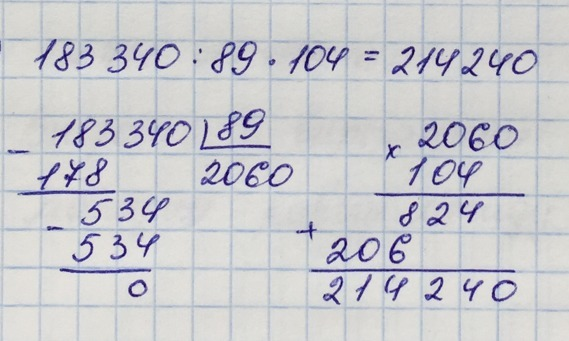 183 340 : 89 · 104 = 214 240
- 183340 | 89
178 2060
- 534
534
0
× 2060
104
824
+ 206
214 240